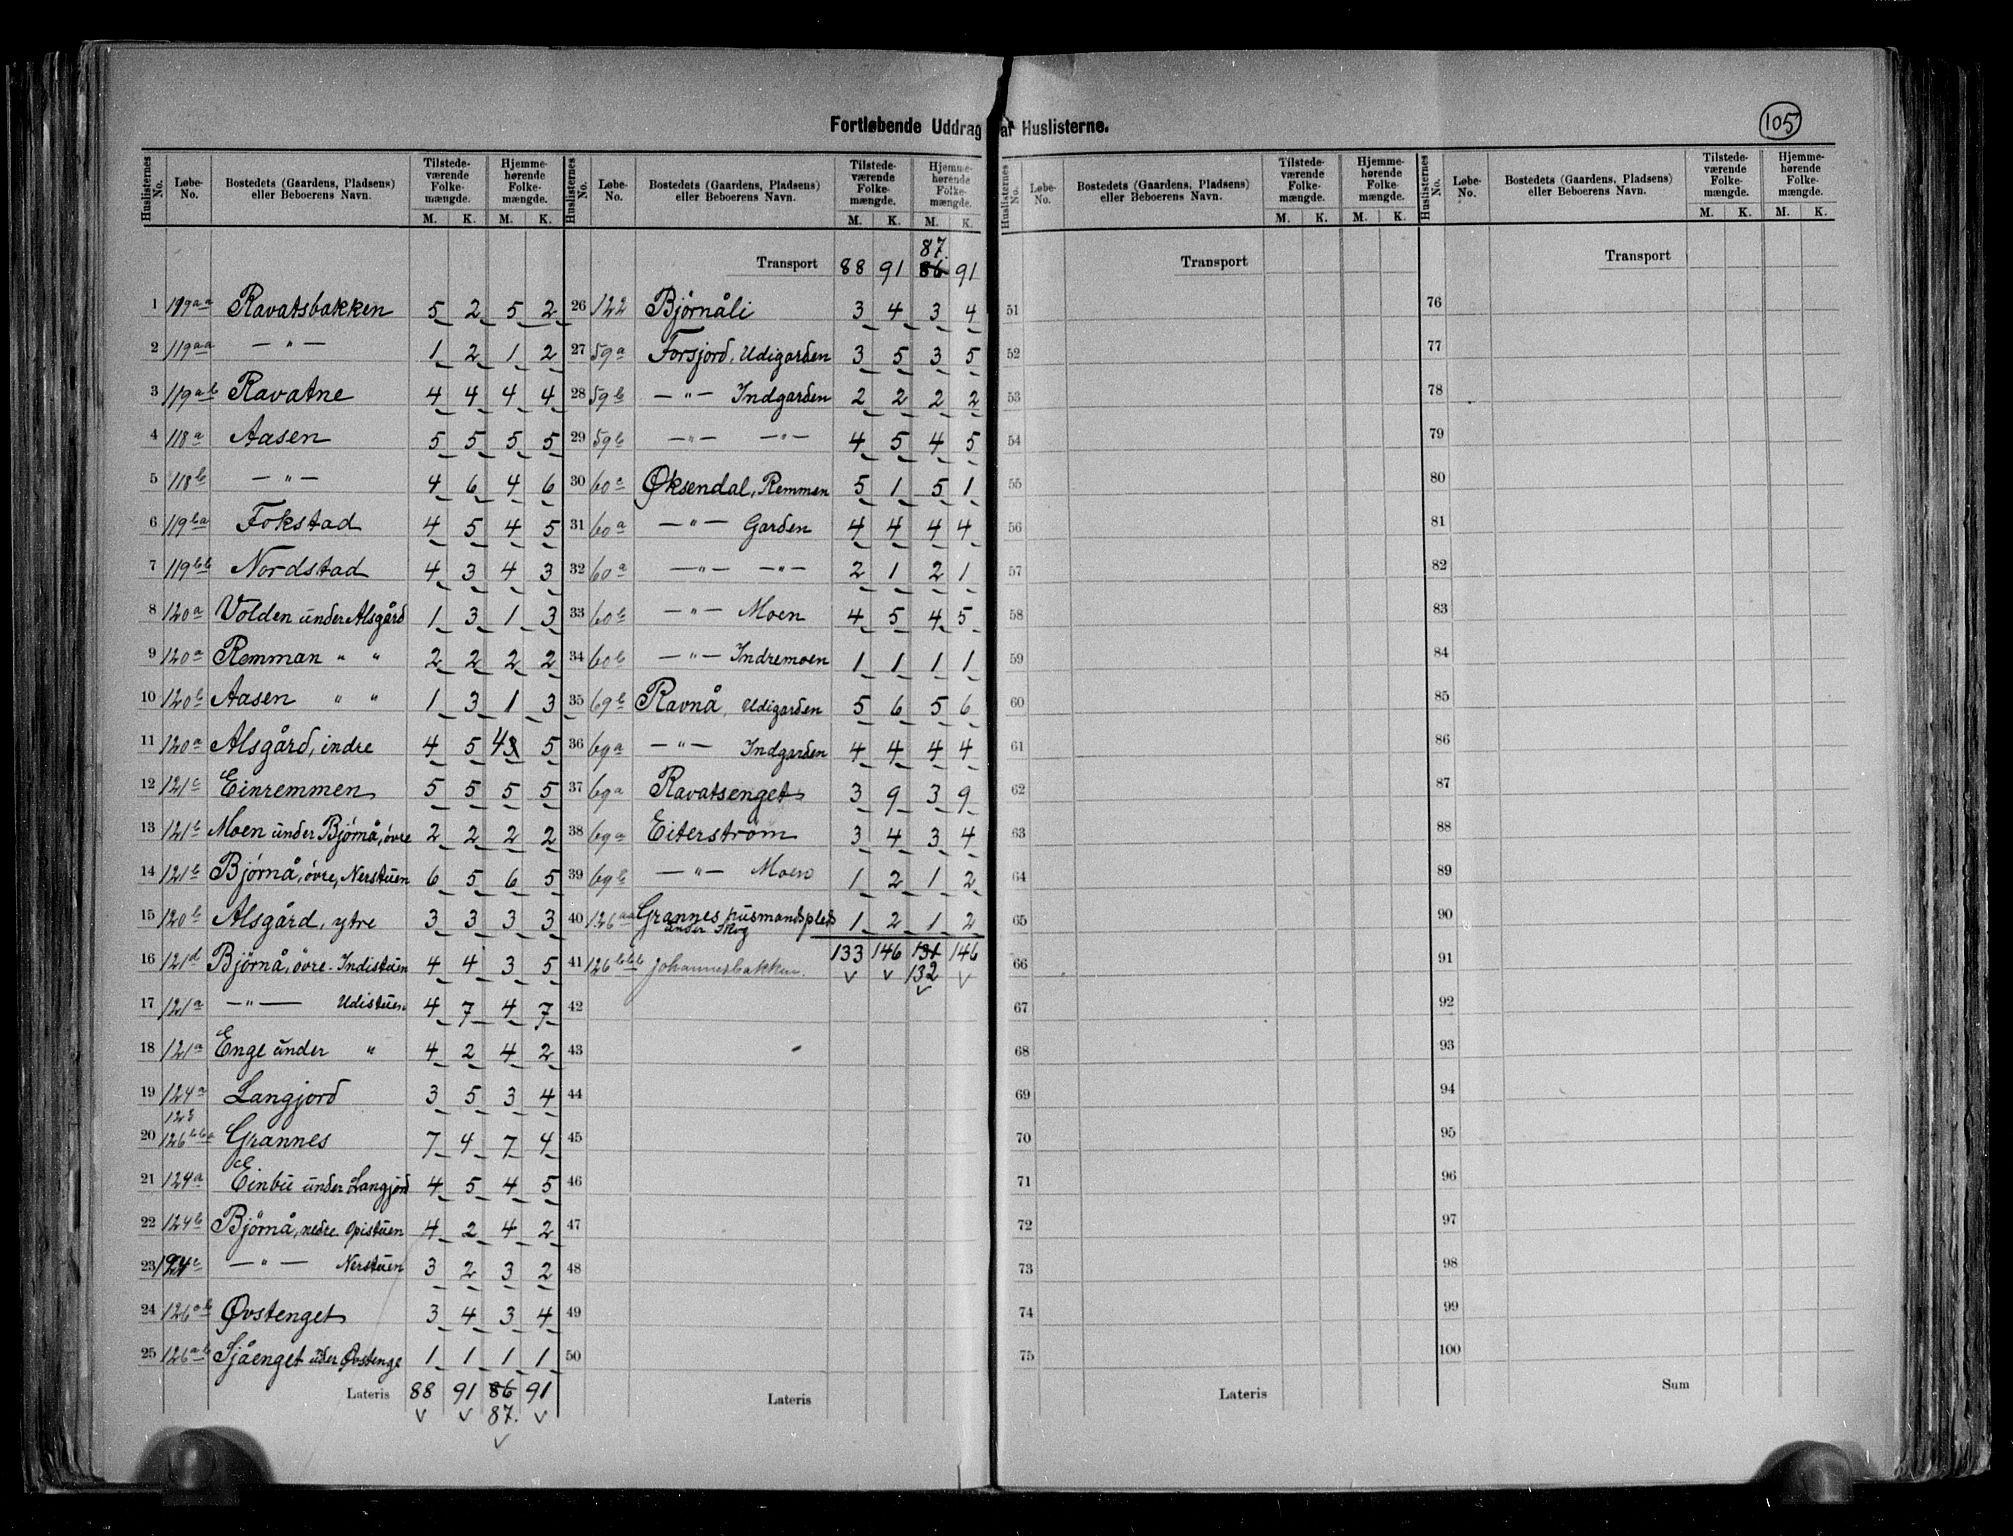 Fortløbende Uddrag af Huslisterne.
105
Huslisternes No. | Løbe-No. | Bostedets (Gaardens, Pladsens) eller Beboerens Navn. | Tilstedeværende Folkemængde. M. K. | Hjemmehørende Folkemængde. M. K.
1 119aa Ravatsbakken 5 2 5 2
2 119aa — " — 1 2 1 2
3 119ab Ravatne 4 4 4 4
4 118a Aasen 5 5 5 5
5 118b — " — 4 6 4 6
6 119ba Fokstad 4 5 4 5
7 119bb Nordstad 4 3 4 3
8 120a Volden under Alsgård 1 3 1 3
9 120a Remman " " 2 2 2 2
10 120b Aasen " " 1 3 1 3
11 120a Alsgård, indre 4 5 4 5
12 121c Einremmen 5 5 5 5
13 121b Moen under Bjørnå, övre 2 2 2 2
14 121b Bjørnå, övre, Nerstuen 6 5 6 5
15 120b Alsgård, ytre 3 3 3 3
16 121d Bjørnå, övre - Indistuen 4 4 3 5
17 121a — " — Udistuen 4 7 4 7
18 121a Enge under " 4 2 4 2
19 124a Langjord 3 5 3 4
123
20 126bba Grannes 7 4 7 4
21 124a Einbu under Langjord 4 5 4 5
22 124b Bjørnå, nedre Opistuen 4 2 4 2
23 124c — " — Nerstuen 3 2 3 2
24 126ab Øvstenget 3 4 3 4
25 126ab Sjåenget under Øvstenge 1 1 1 1
Lateris 88 91 86 91
87.
Huslisternes No. | Løbe-No. | Bostedets (Gaardens, Pladsens) eller Beboerens Navn. | Tilstedeværende Folkemængde. M. K. | Hjemmehørende Folkemængde. M. K.
87.
Transport 88 91 86 91
26 122 Bjørnåli 3 4 3 4
27 59a Forsjord, Udigarden 3 5 3 5
28 59b — " — Indgarden 2 2 2 2
29 59b — " — — " — 4 5 4 5
30 60a Øksendal, Remmen 5 1 5 1
31 60a — " — Garden 4 4 4 4
32 60a — " — — " — 2 1 2 1
33 60b — " — Moen 4 5 4 5
34 60b — " — Indremoen 1 1 1 1
35 69b Ravnå, Udigarden 5 6 5 6
36 69a — " — Indgarden 4 4 4 4
37 69a Ravatsenget 3 9 3 9
38 69a Eiterstrøm 3 4 3 4
39 69b — " — Moen 1 2 1 2
40 126aa Grannes husmandsplads under Skog 1 2 1 2
133 146 131 146
41 126bbb Johannesbakken. 132
42
43
44
45
46
47
48
49
50
Lateris
Huslisternes No. | Løbe-No. | Bostedets (Gaardens, Pladsens) eller Beboerens Navn. | Tilstedeværende Folkemængde. M. K. | Hjemmehørende Folkemængde. M. K.
Transport
51
52
53
54
55
56
57
58
59
60
61
62
63
64
65
66
67
68
69
70
71
72
73
74
75
Lateris
Huslisternes No. | Løbe-No. | Bostedets (Gaardens, Pladsens) eller Beboerens Navn. | Tilstedeværende Folkemængde. M. K. | Hjemmehørende Folkemængde. M. K.
Transport
76
77
78
79
80
81
82
83
84
85
86
87
88
89
90
91
92
93
94
95
96
97
98
99
100
Sum